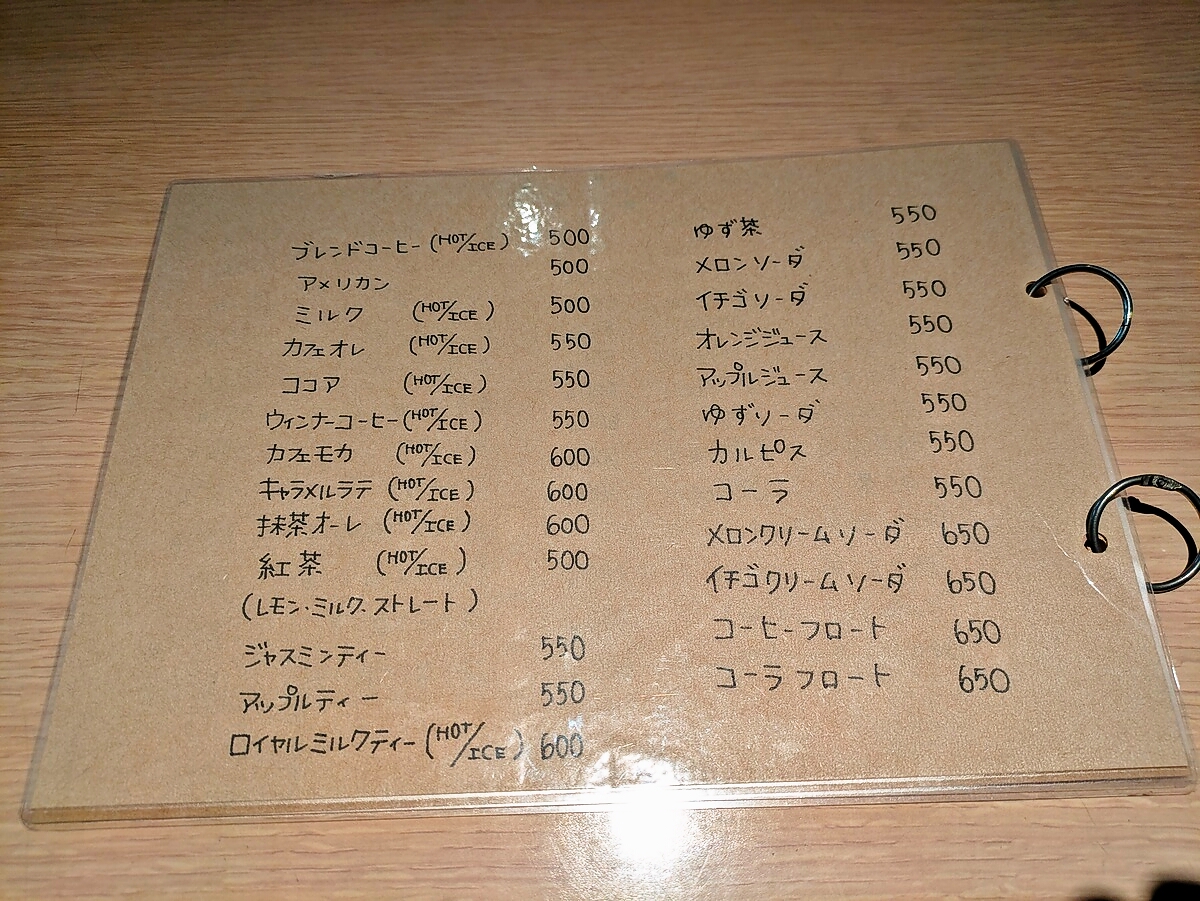 ブレンドコーヒー (HOT/ICE) 500
アメリカン 500
ミルク (HOT/ICE) 500
カフェオレ (HOT/ICE) 550
ココア (HOT/ICE) 550
ウィンナーコーヒー (HOT/ICE) 550
カフェモカ (HOT/ICE) 600
キャラメルラテ (HOT/ICE) 600
抹茶オーレ (HOT/ICE) 600
紅茶 (HOT/ICE) 500
(レモン・ミルク・ストレート)
ジャスミンティー 550
アップルティー 550
ロイヤルミルクティー (HOT/ICE) 600
ゆず茶 550
メロンソーダ 550
イチゴソーダ 550
オレンジジュース 550
アップルジュース 550
ゆずソーダ 550
カルピス 550
コーラ 550
メロンクリームソーダ 650
イチゴクリームソーダ 650
コーヒーフロート 650
コーラフロート 650